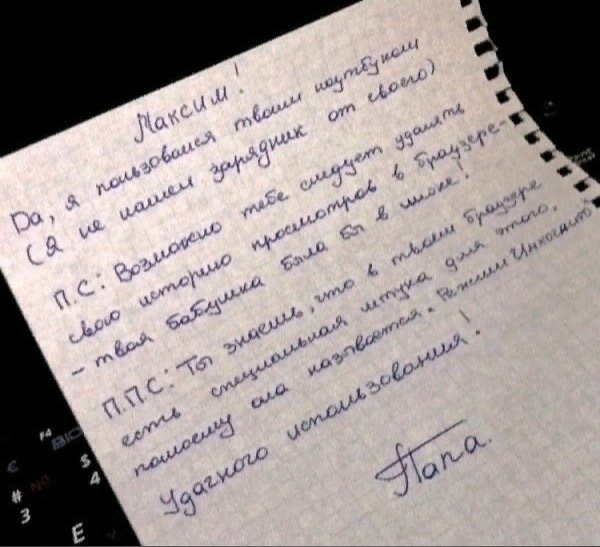 Максим!
Да, я пользовался твоим ноутбуком
(Я не нашел зарядник от своего)
П.С: Возможно тебе следует удалять
свою историю просмотров в браузере-
- твоя бабушка была бы в шоке!
П.П.С: Ты знаешь, что в твоем браузере
есть специальная штука для этого,
помоему она называется. Режим Инкогнито
Удачного использования!
Папа.
F4
BIO
$
4
#
3
E